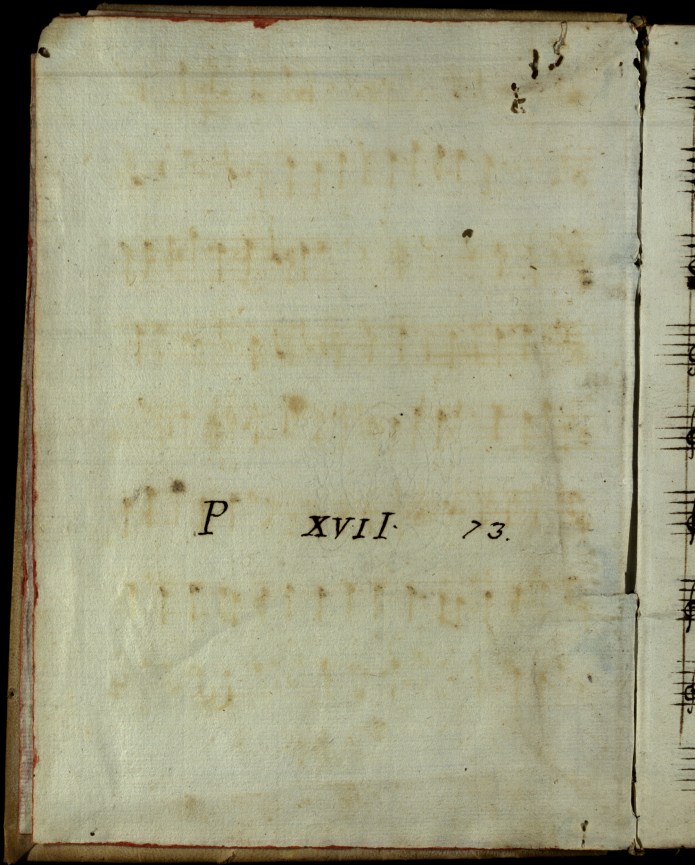 P XVII. 73.